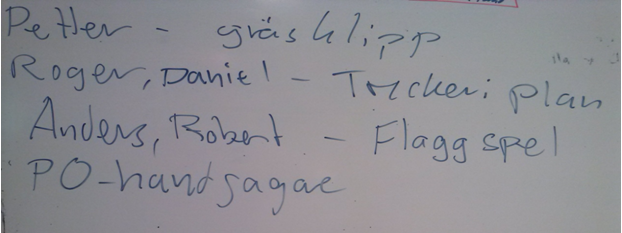 Petter - gräsklipp
Roger, Daniel - Trckeri plan
Anders, Robert - Flaggspel
PO-handsagae